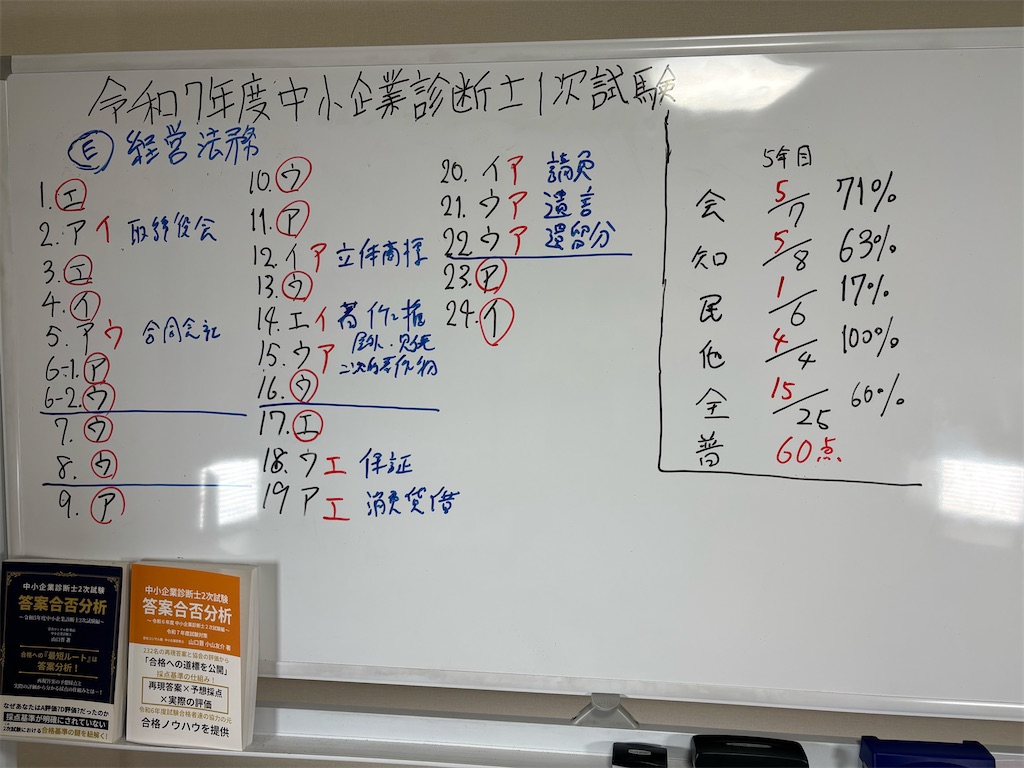 令和7年度中小企業診断士1次試験
E 経営法務
1. エ
2. ア イ 取締役会
3. エ
4. イ
5. ア ウ 合同会社
6-1. ア
6-2. ウ
7. ウ
8. ウ
9. ア
10. ウ
11. ア
12. イ ア 立体商標
13. ウ
14. エ イ 著作権
屋外、
15. ウ ア 二次的著作物
16. ウ
17. エ
18. ウ エ 保証
19 ア エ 消費貸借
20. イ ア 請負
21. ウ ア 遺言
22. ウ ア 遺留分
23. ア
24. イ
5年目
会 5/7 71%
知 5/8 63%
民 1/6 17%
他 4/4 100%
全 15/25 60%
普 60点
中小企業診断士2次試験
答案合否分析
～令和5年度中小企業診断士2次試験編～
山口晋 著
合格への『最短ルート』は
答案分析！
再現答案の予想採点と
実際の評価から分かる採点の仕組みとは…！
なぜあなたはA評価?D評価?だったのか
採点基準が明確にされていない
2次試験における合格基準の謎を紐解く！
中小企業診断士2次試験
答案合否分析
～令和6年度 中小企業診断士2次試験編～
令和7年度試験対策
山口晋 小山友介 著
232名の再現答案と協会の評価から
「合格への道標を公開」
採点基準の仕組み！
再現答案×予想採点
×実際の評価
令和6年度試験合格者達の協力の元
合格ノウハウを提供